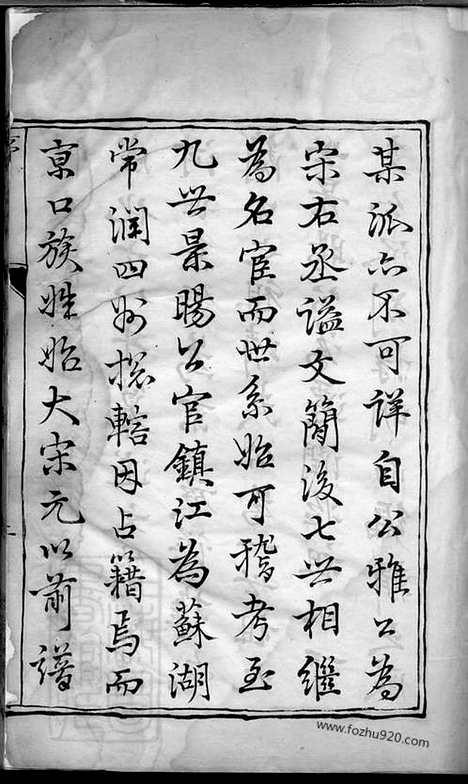 某派亦不可詳自公雅公為
宋右丞謚文簡後七世相繼
為名宦而世系始可稽考至
九世景暘公官鎮江為蘇湖
常潤四州總轄因占籍焉而
京口族姓始大宋元以前譜
www.fozhu920.com